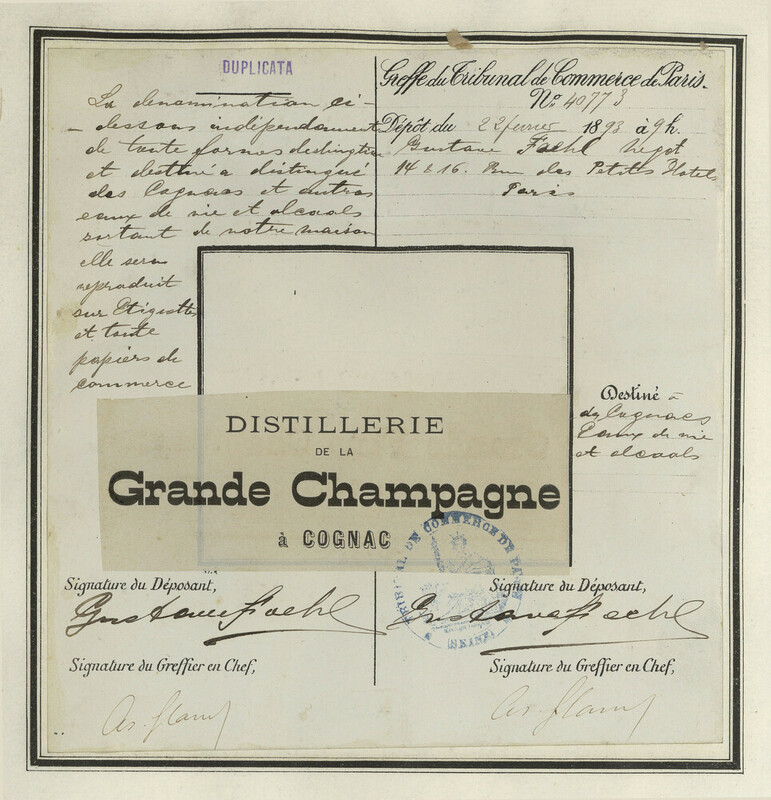 DUPLICATA
La denomination ci-
-dessous indépendament
de toute formes destingtion
et destiné a distingué
des Cognacs et autres
eaux de vie et alcools
sortant de notre maison
elle sera
reproduit
sur Etiquettes
et toute
papiers de
commerce
Greffe du Tribunal de Commerce de Paris.
No 40773
Dépôt du 22 février 1893 à 9 h.
Gustave Negot
14 & 16. Rue des Petits Hotels
Paris
Destiné à
des Cognacs
Eaux de vie
et alcools
DISTILLERIE
DE LA
Grande Champagne
à COGNAC
TRIBUNAL DE COMMERCE DE PARIS
(SEINE)
Signature du Déposant,
Gustave
Signature du Greffier en Chef,
Signature du Déposant,
Gustave
Signature du Greffier en Chef,